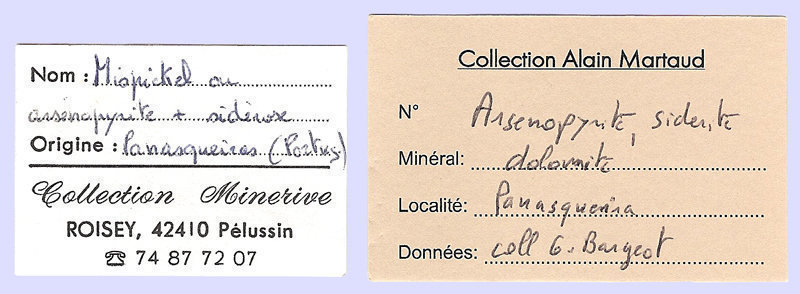 Nom : Mispickel ou
arsénopyrite + sidérose
Origine : Panasqueiras (Portug)
Collection Minerive
ROISEY, 42410 Pélussin
☎ 74 87 72 07
Collection Alain Martaud
N° Arsenopyrite, siderite
Minéral: dolomite
Localité: Panasqueira
Données: coll G. Bargeot